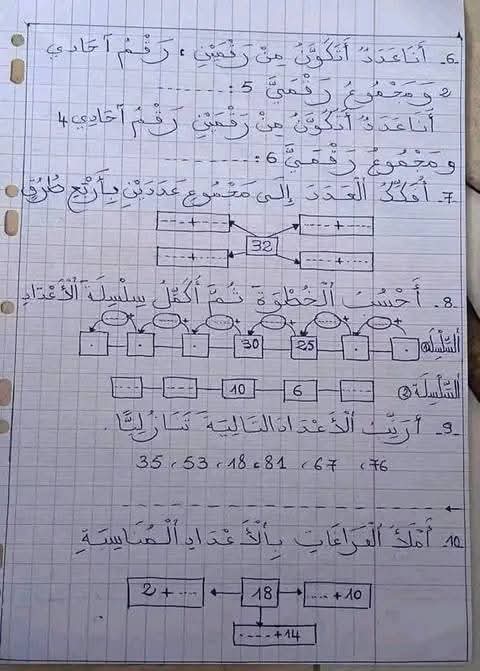 6. أَنَا عَدَدٌ أَتَكَوَّنُ مِنْ رَقْمَيْنِ ، رَقْمُ آحَادِي
2 وَمَجْمُوعُ رَقْمَيَّ 5 : --------
أَنَا عَدَدٌ أَتَكَوَّنُ مِنْ رَقْمَيْنِ رَقْمُ آحَادِي 4
وَمَجْمُوعُ رَقْمَيَّ 6 : --------
7. أُفَكِّكُ الْعَدَدَ إِلَى مَجْمُوعِ عَدَدَيْنِ بِأَرْبَعِ طُرُقٍ
----+---- ----+----
32
----+---- ----+----
8. أَحْسُبُ الْخُطْوَةَ ثُمَّ أُكَمِّلُ سِلْسِلَةَ الْأَعْدَادِ
+ + + + + +
السِّلْسِلَة ① . . 25 30 . . .
السِّلْسِلَة ② ---- 6 10 ---- ----
9. أُرَتِّبُ الْأَعْدَادَ التَّالِيَةَ تَنَازُلِيًّا .
76 ، 67 ، 81 ، 18 ، 53 ، 35
10. أَمْلَأُ الْفَرَاغَاتِ بِالْأَعْدَادِ الْمُنَاسِبَةِ
2 + ---- 18 ---- + 10
---- + 14